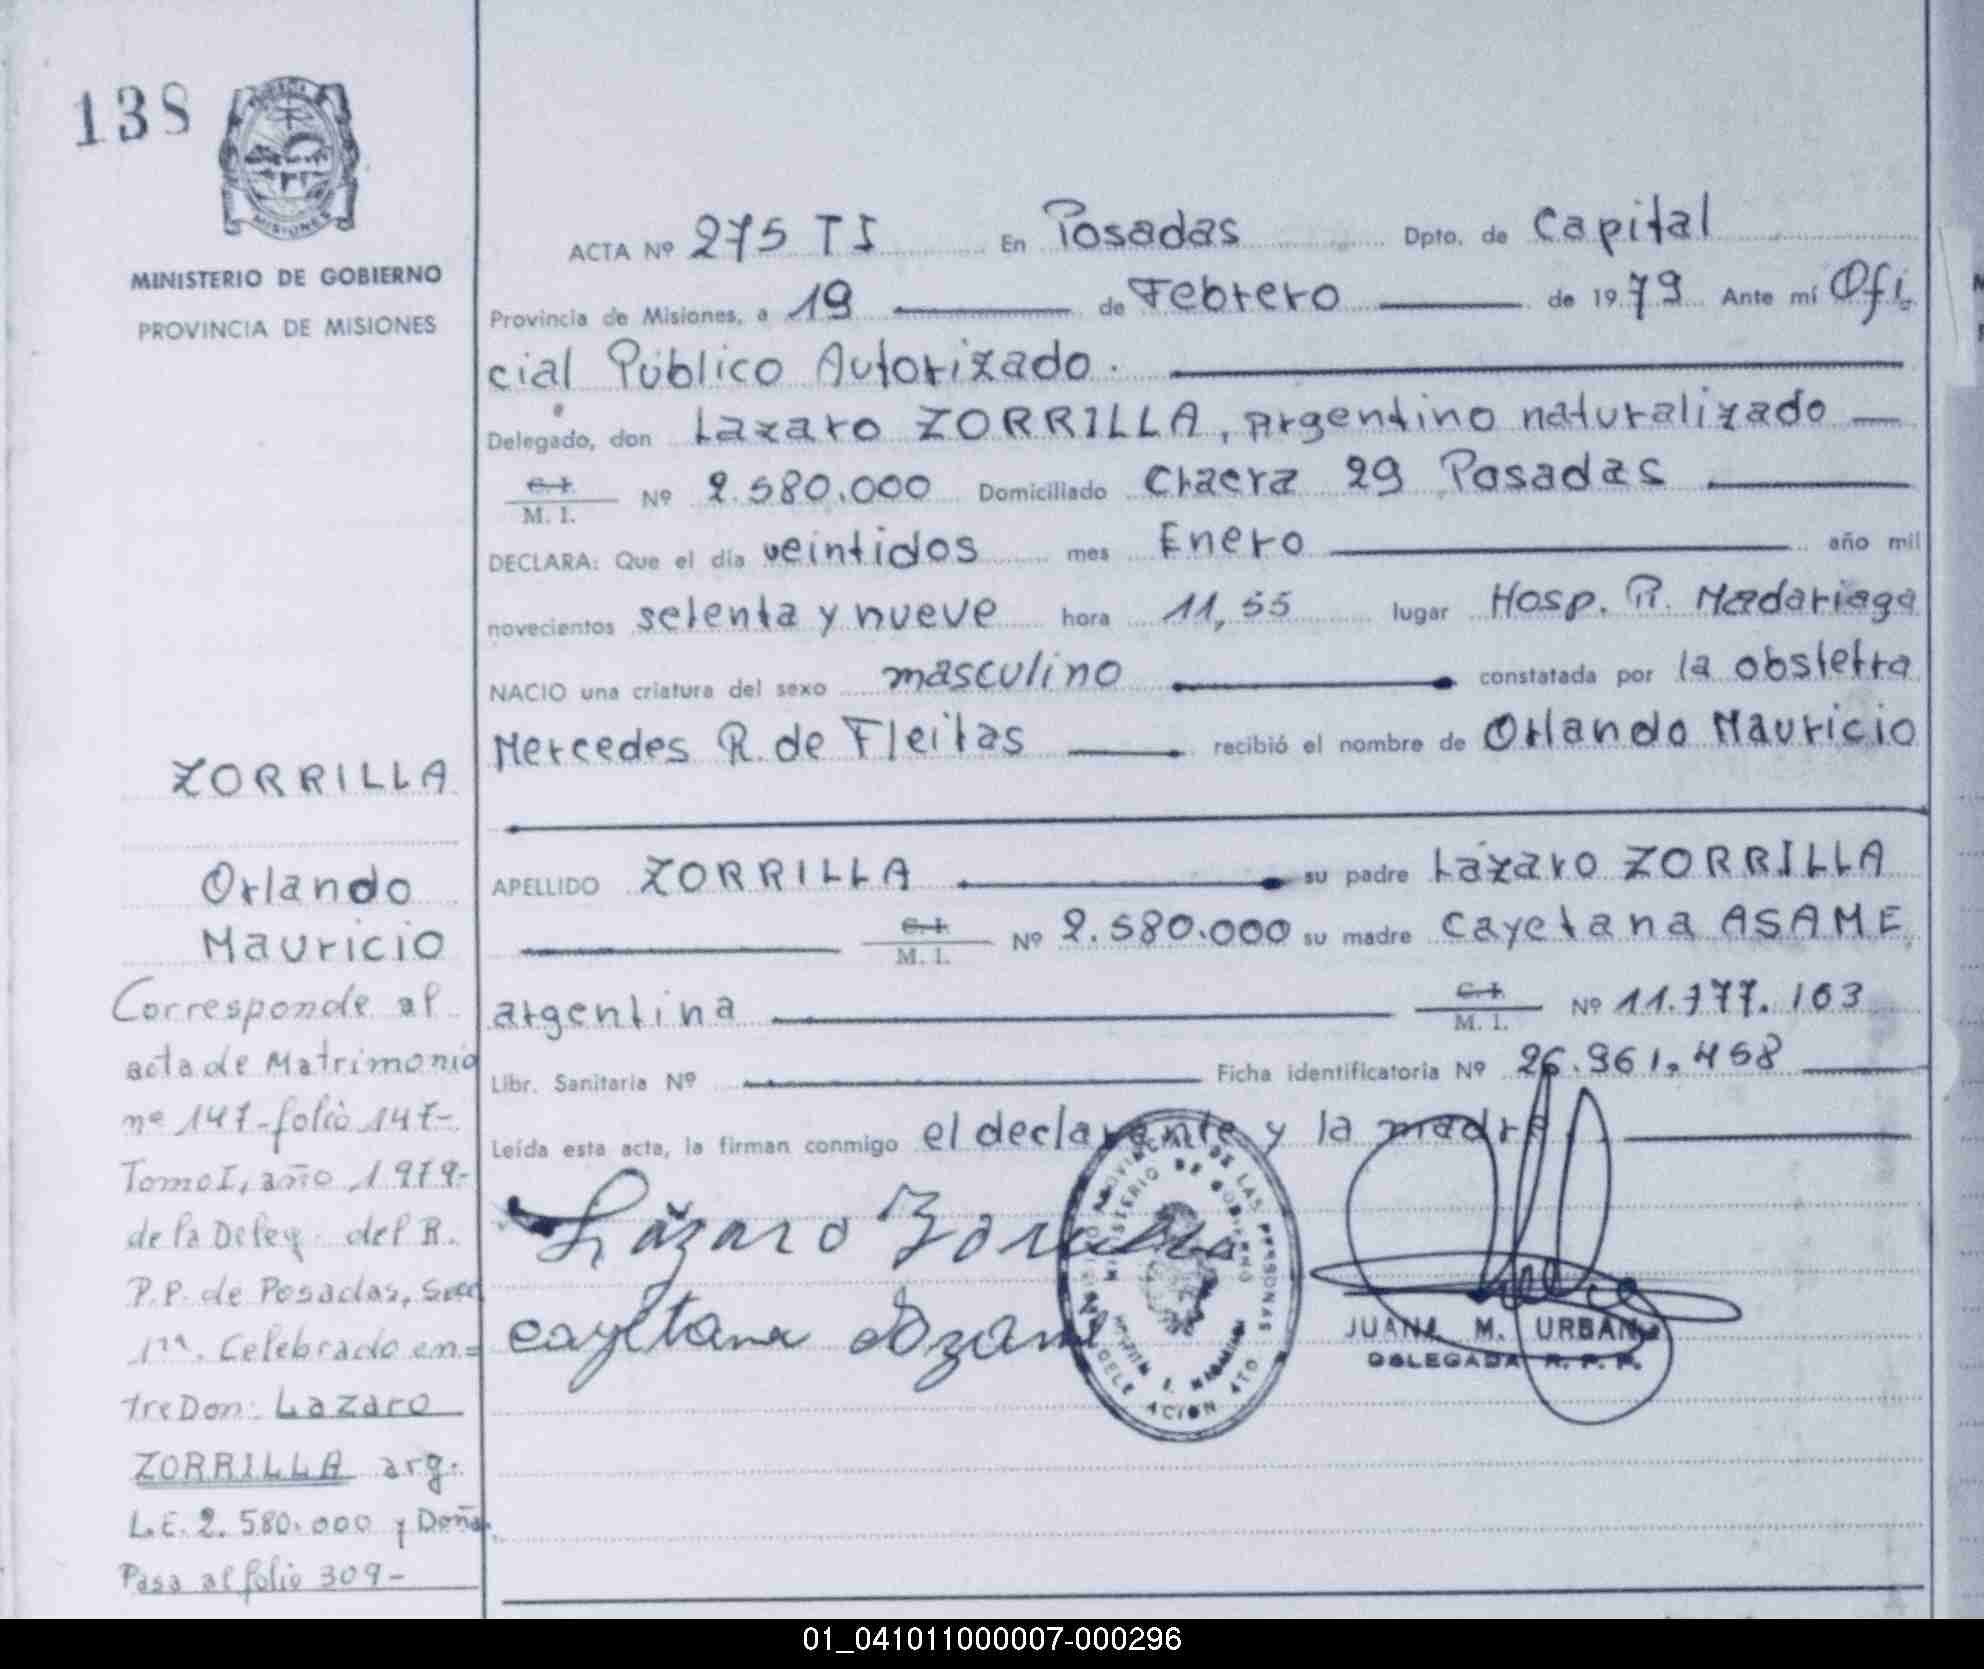 138
MISIONES
MINISTERIO DE GOBIERNO
PROVINCIA DE MISIONES
ACTA Nº 275 TI En Posadas Dpto. de Capital
Provincia de Misiones, a 19 de Febrero de 1979 Ante mí Ofi
cial Público Autorizado.
Delegado, don Lazaro ZORRILLA, argentino naturalizado
C. I.
M. I. Nº 2.580.000 Domiciliado Chacra 29 Posadas
DECLARA: Que el día veintidos mes Enero año mil
novecientos setenta y nueve hora 11,55 lugar Hosp. R. Madariaga
NACIO una criatura del sexo masculino constatada por la obstetra
Mercedes R. de Fleitas recibió el nombre de Orlando Mauricio
APELLIDO ZORRILLA su padre Lázaro ZORRILLA
C. I.
M. I. Nº 2.580.000 su madre Cayetana ASAME,
argentina C. I.
M. I. Nº 11.777.163
Libr. Sanitaria Nº Ficha identificatoria Nº 26.961.458
Leída esta acta, la firman conmigo el declarante y la madre
Lázaro Zorrilla
cayetana
JUANA M. URBAN
DELEGADA R. P. P.
MINISTERIO DE GOBIERNO
DE LAS PERSONAS
DELEGACION
ZORRILLA
Orlando
Mauricio
Corresponde al
acta de Matrimonio
nº 147-folio 147-
Tomo I, año 1979-
de la Deleg. del R.
P.P. de Posadas, Secc
1ra. Celebrado en=
tre Don: Lazaro
ZORRILLA arg.
L.E. 2.580.000 y Doña
Pasa al folio 309-
01_041011000007-000296